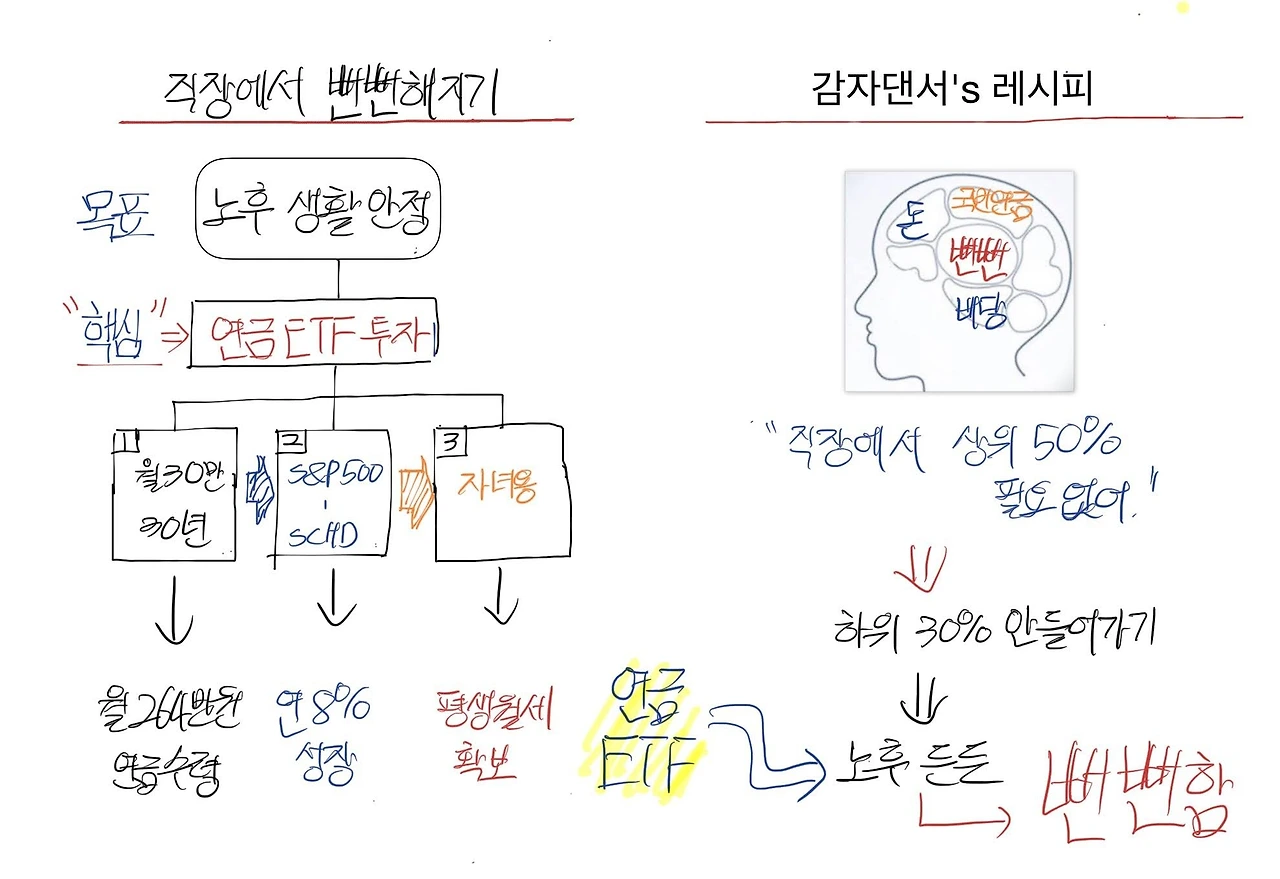 직장에서 뻔뻔해지기
목표
노후 생활 안정
"핵심" ⇒
연금 ETF 투자
1
월30만
30년
2
S&P500
-
SCHD
3
자녀용
월 264만원
연금수령
연 8%
성장
평생월세
확보
감자댄서's 레시피
돈
국민연금
뻔뻔
배당
"직장에서 상위 50%
필요 없어."
하위 30% 안들어가기
연금
ETF
노후 든든
뻔뻔함